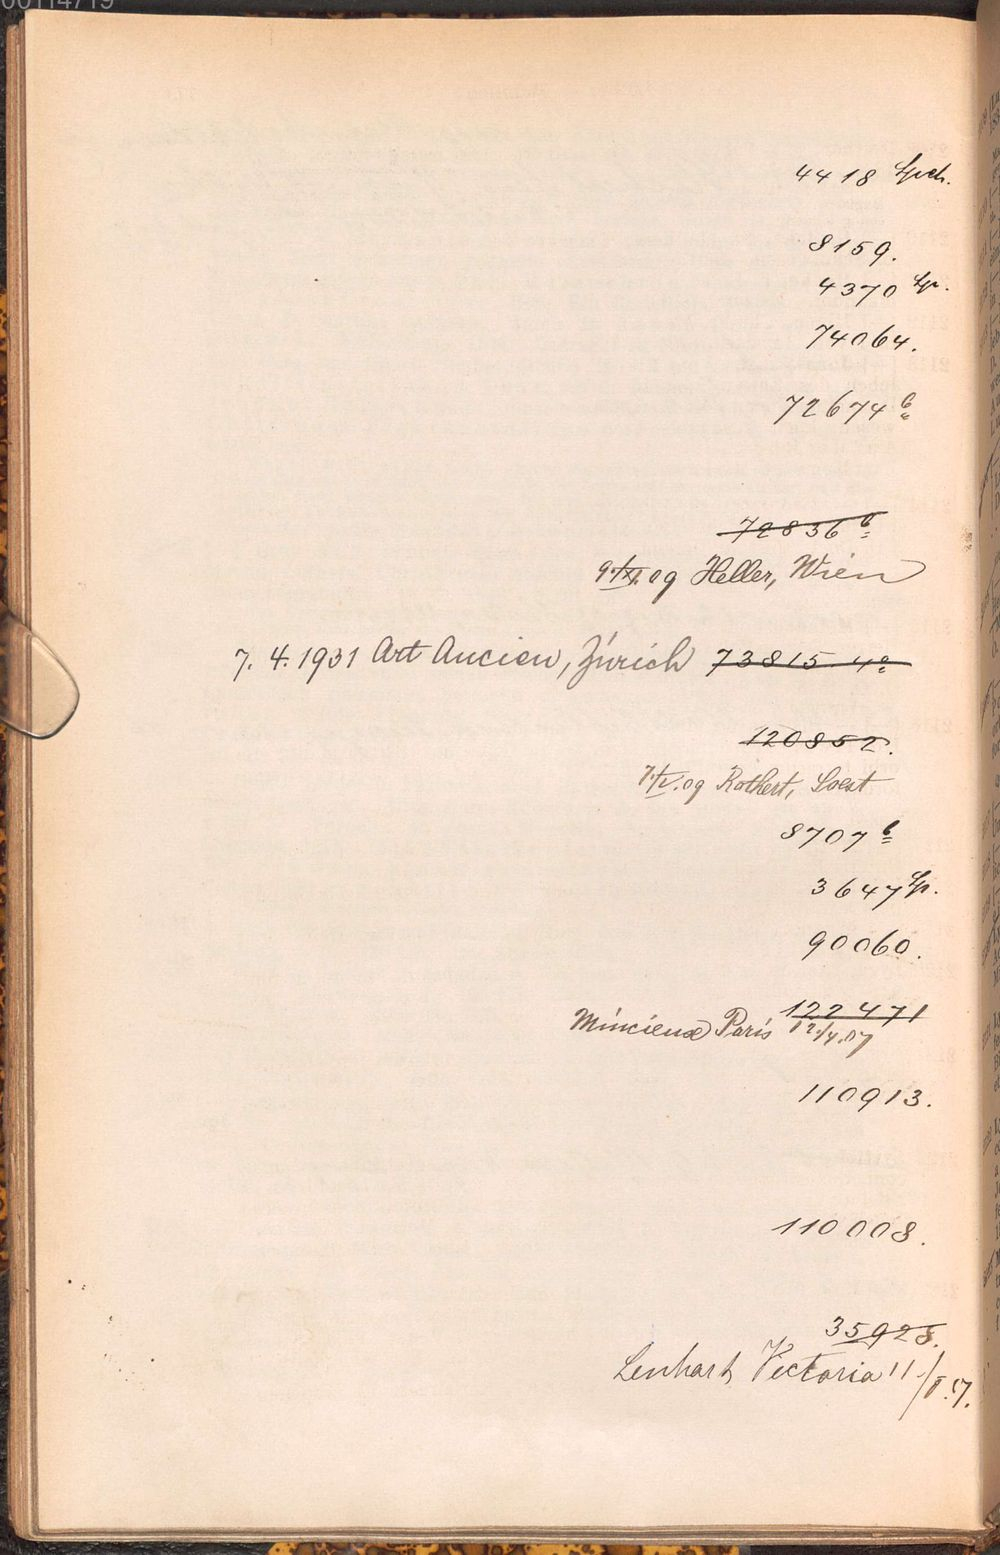 00114719
4418 Spch.
8159.
4370 Sp.
74064.
72674 b
72836 b
9./XI.09 Heller, Wien
7. 4. 1931 Art Ancien, Zürich 73815 4 a
120852.
7./V.09 Rothert, Soest
8707 b
3647 Sp.
90060.
122471
Paris 12./4.07
110913.
110008.
35928.
Lenhart, Victoria 11./